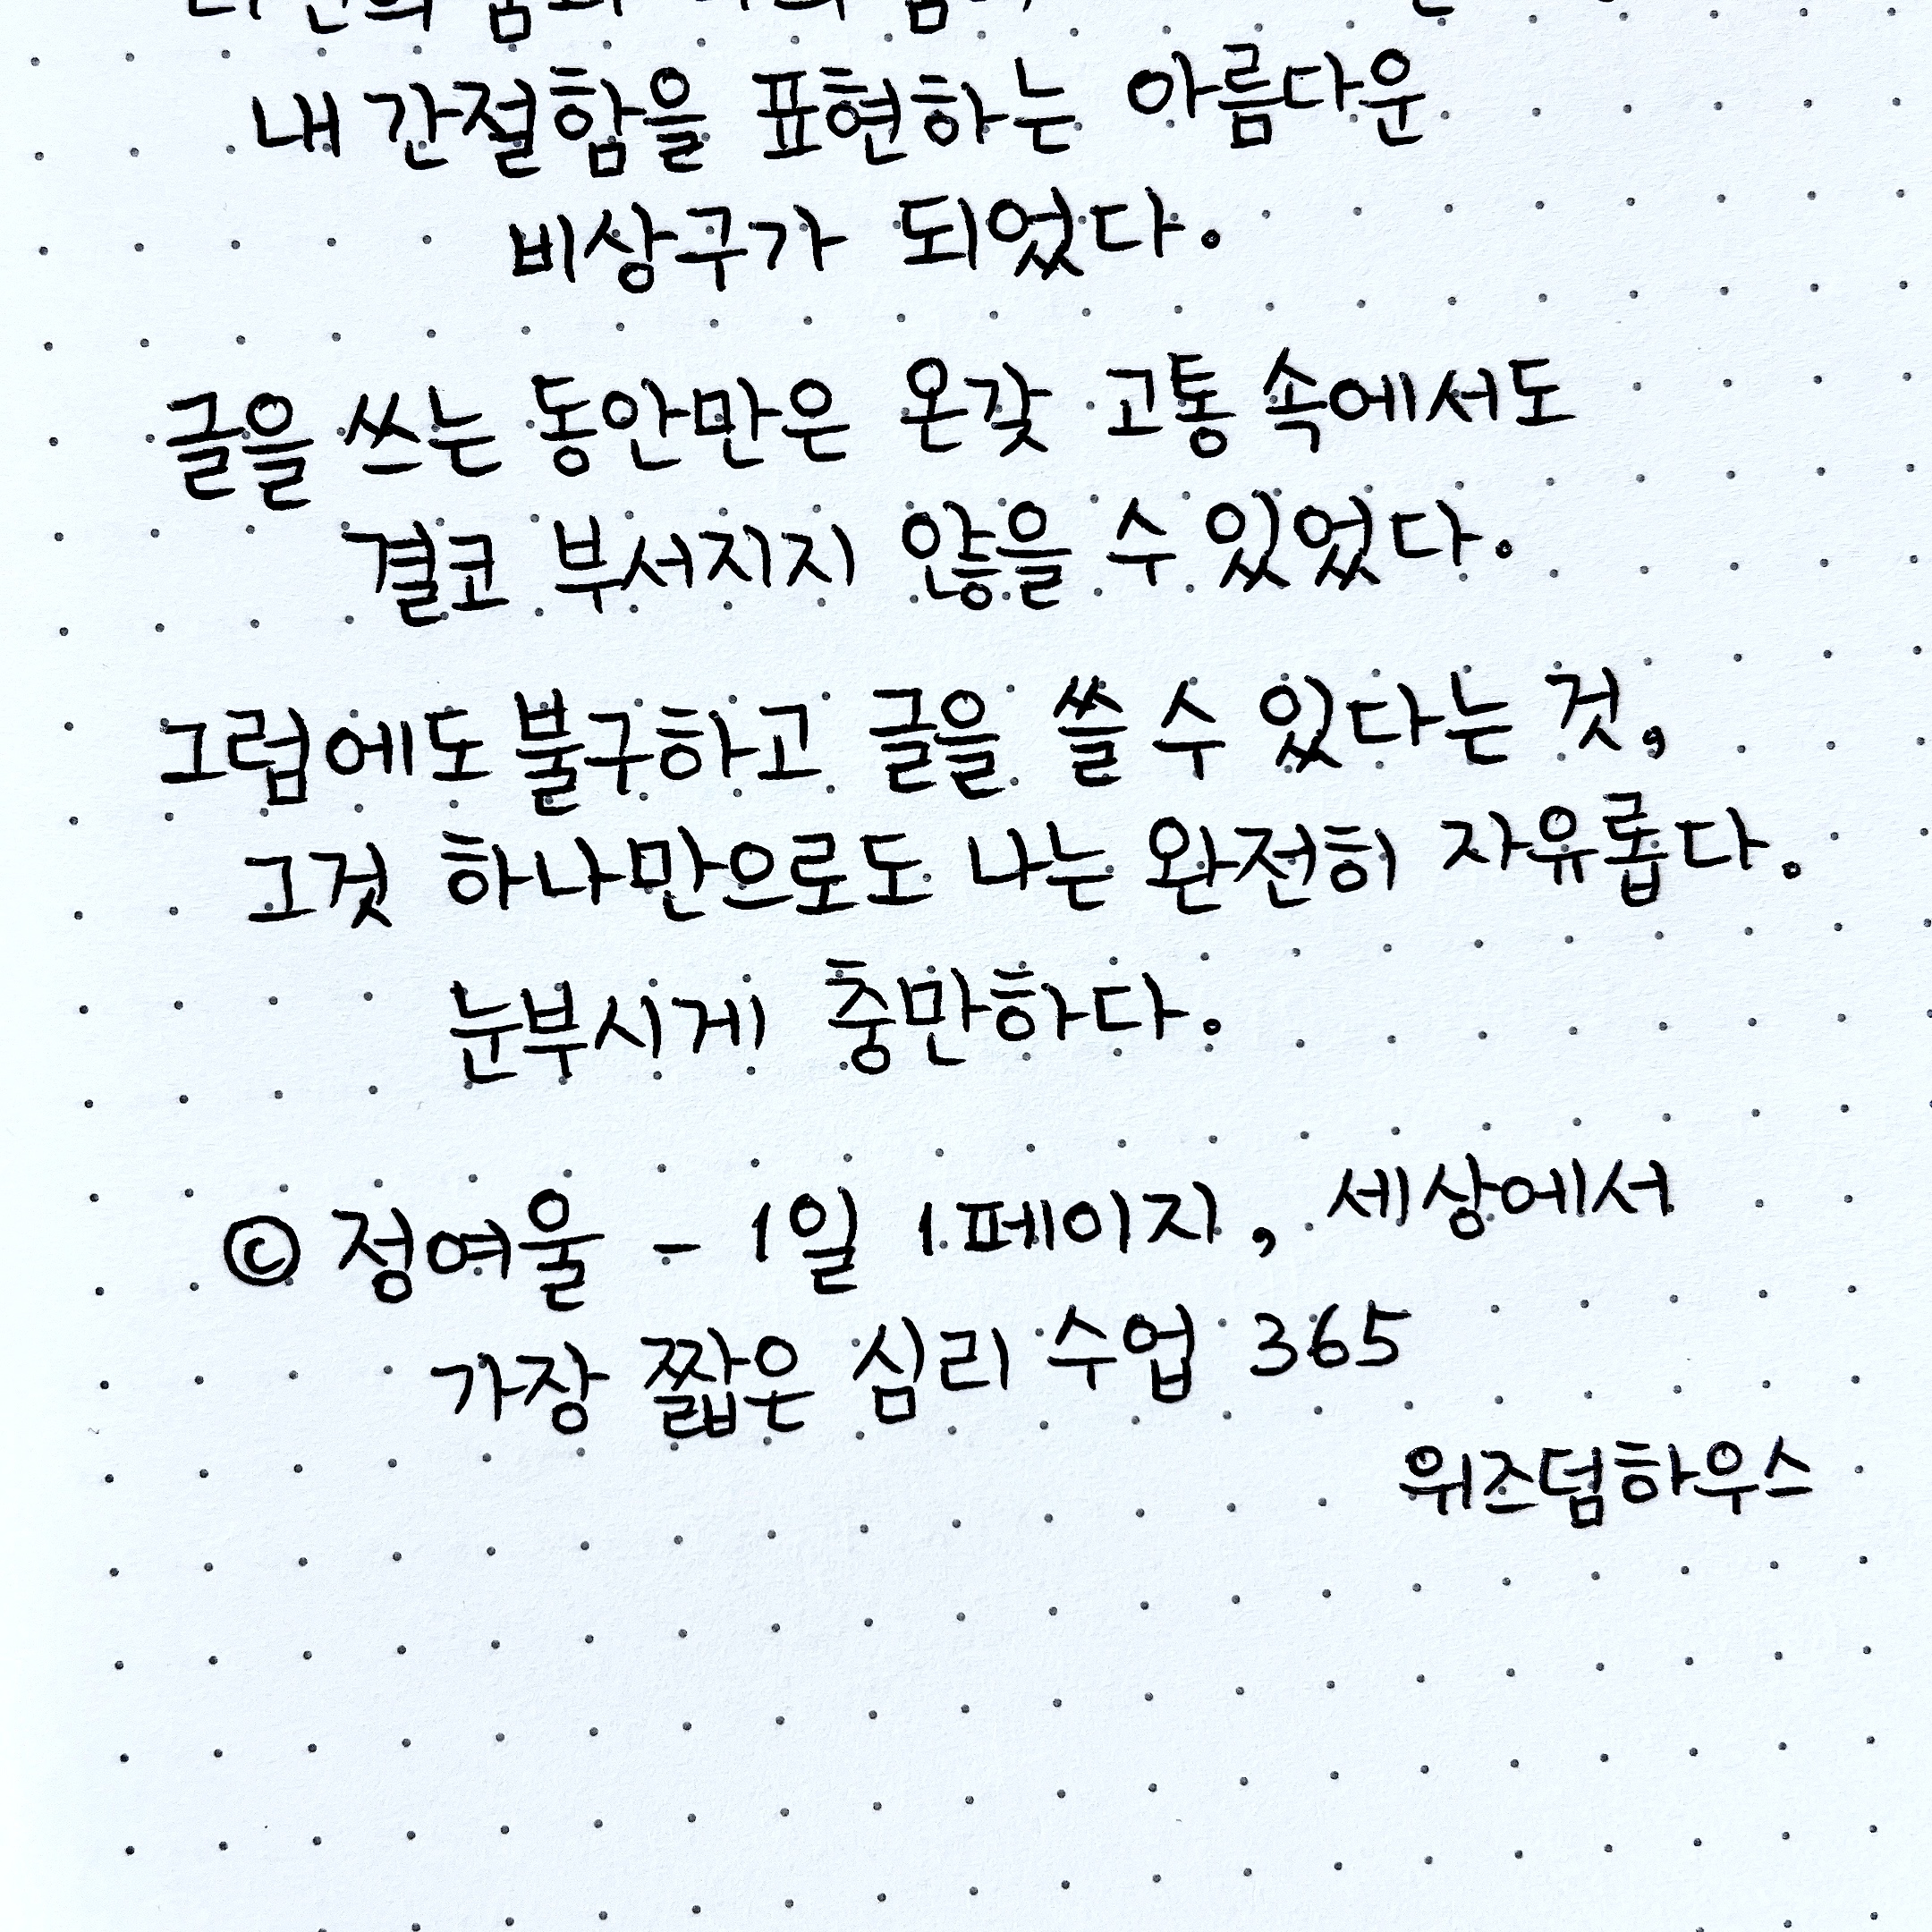 내 간절함을 표현하는 아름다운
비상구가 되었다.
글을 쓰는 동안만은 온갖 고통 속에서도
결코 부서지지 않을 수 있었다.
그럼에도 불구하고 글을 쓸 수 있다는 것,
그것 하나만으로도 나는 완전히 자유롭다.
눈부시게 충만하다.
© 정여울 - 1일 1페이지, 세상에서
가장 짧은 심리 수업 365
위즈덤하우스